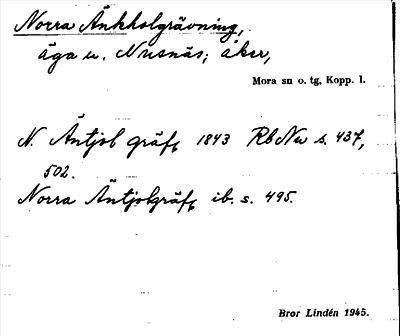 Norra Änkholgrävning,
äga u. Nusnäs; åker,
Mora sn o. tg, Kopp. l.
N. Äntjol gräft 1843 Rb Nu s. 437,
502.
Norra Äntjolgräft ib. s. 495.
Bror Lindén 1945.